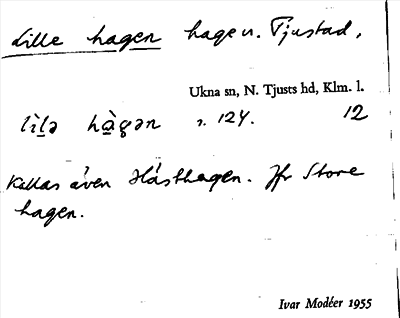 Lille hagen hagen. Tjustad,
Ukna sn, N. Tjusts hd, Klm. l.
lìlə hàgən s. 124. 12
Kallas även Hästhagen. Jfr Store
hagen.
Ivar Modéer 1955